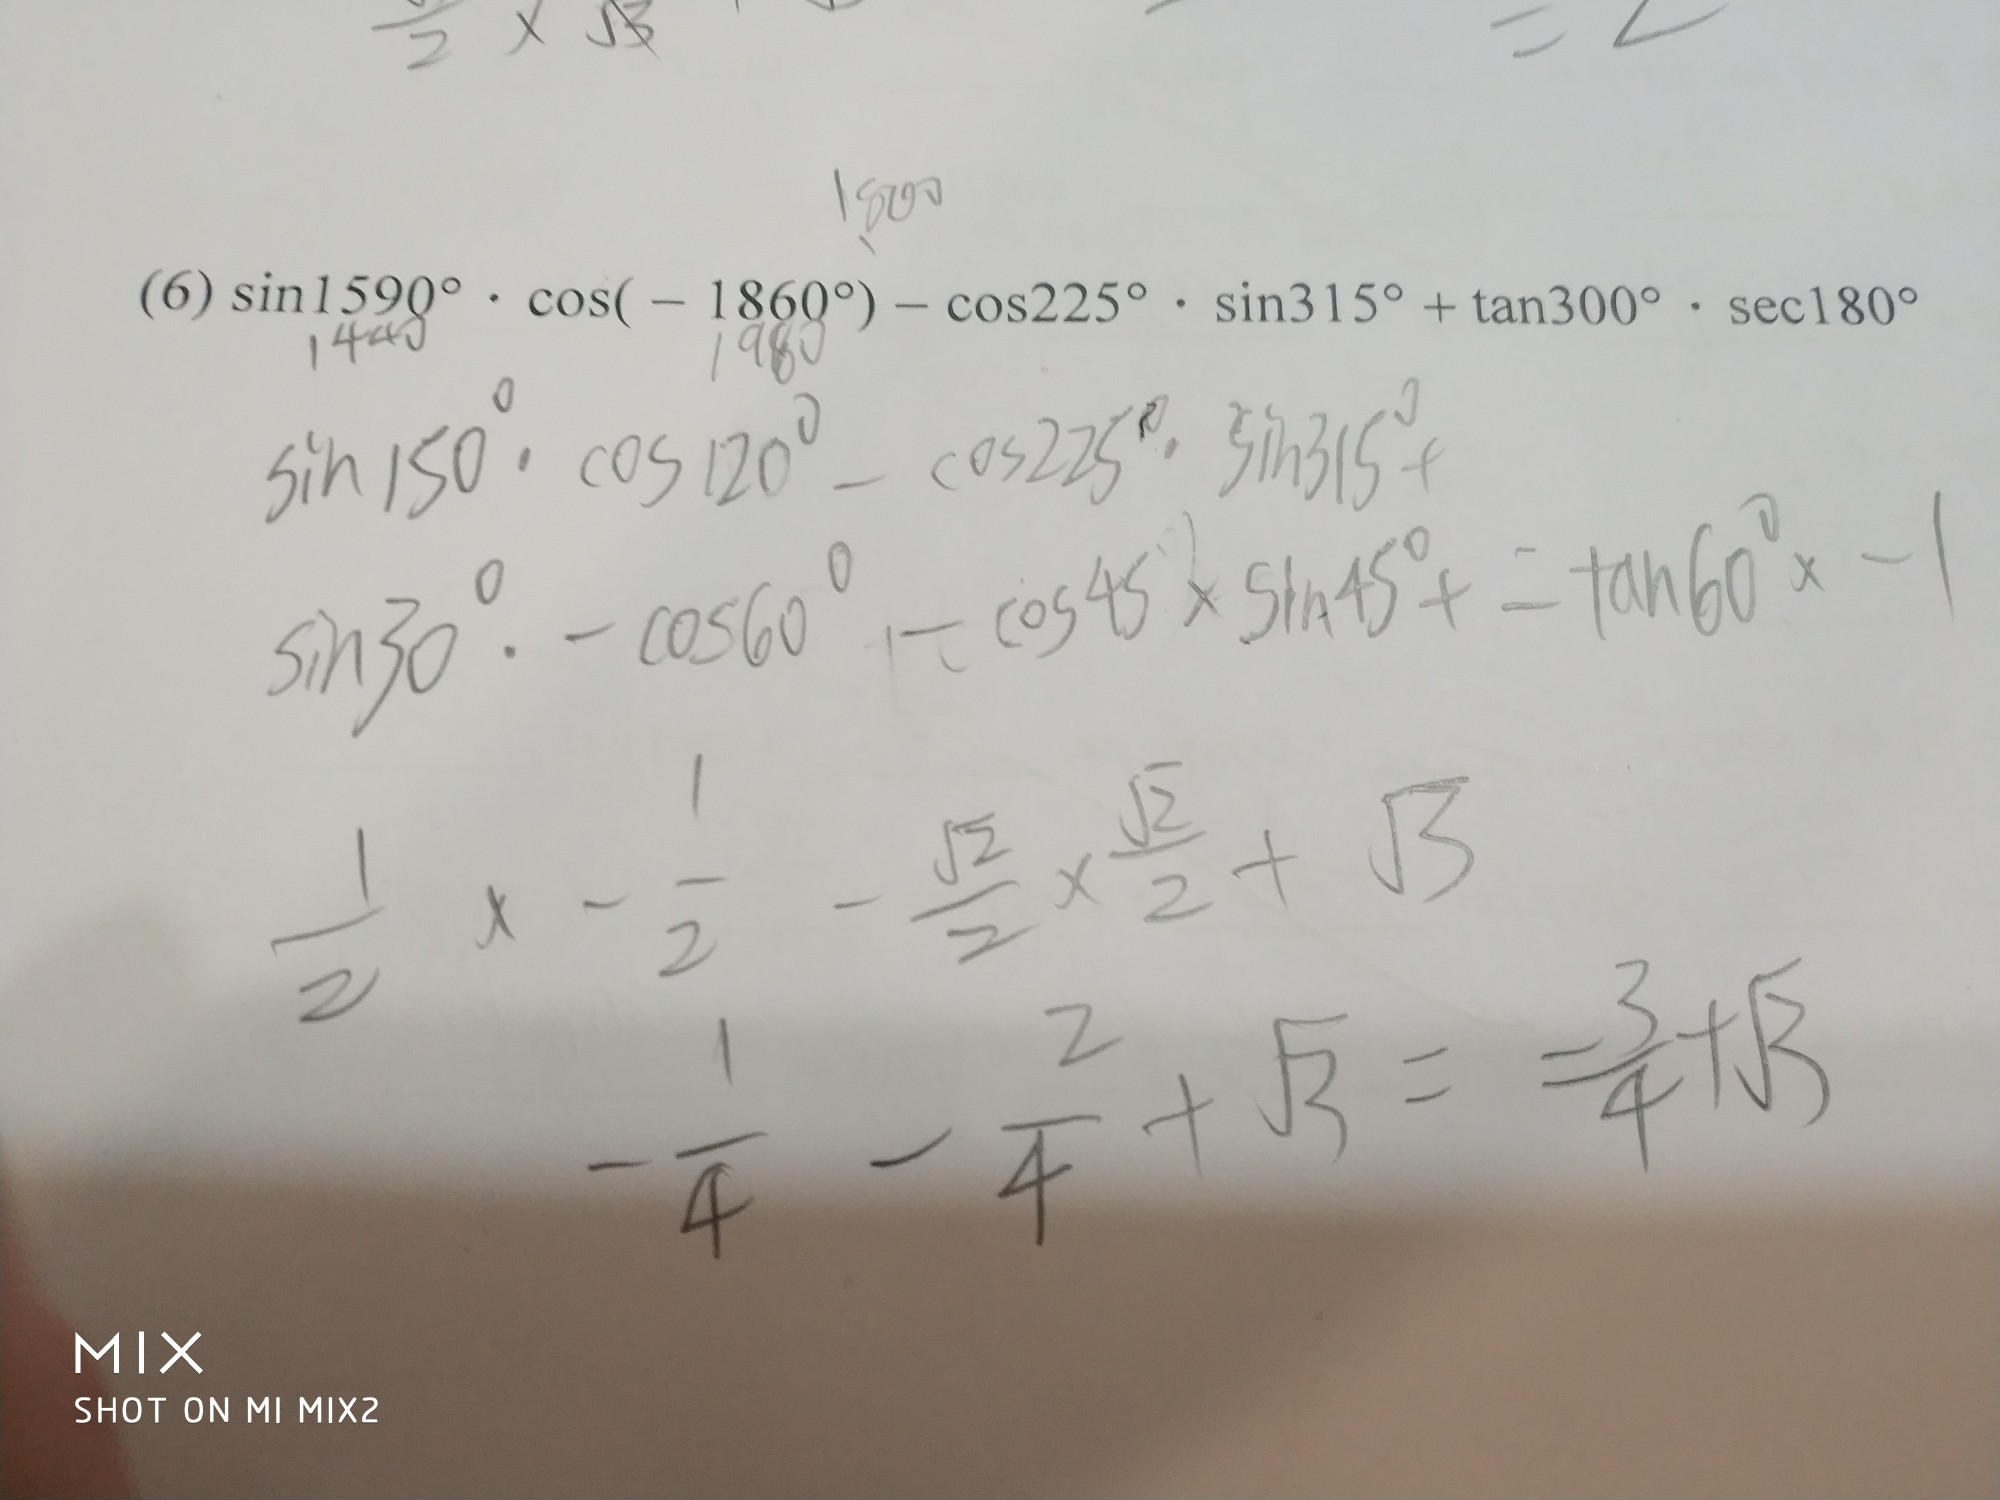 2 × √3
= 2
1800
(6) sin1590° · cos( − 1860°) − cos225° · sin315° + tan300° · sec180°
1440 1980
sin150° · cos120° − cos225° · sin315° +
sin30° · − cos60° − cos45 × sin45° + = tan60° × −1
1/2 × − 1/2 − √2/2 × √2/2 + √3
− 1/4 − 2/4 + √3 = −3/4 + √3
MIX
SHOT ON MI MIX2